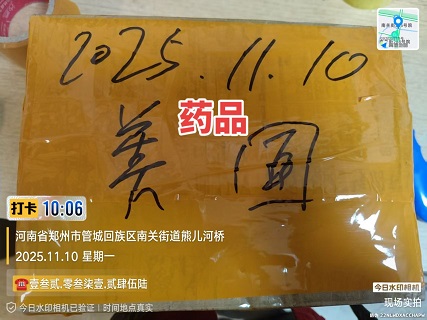 2025.11.10
药品
美国
打卡 10:06
河南省郑州市管城回族区南关街道熊儿河桥
2025.11.10 星期一
壹叁贰.零叁柒壹.贰肆伍陆
今日水印相机已验证 | 时间地点真实
今日水印相机
现场实拍